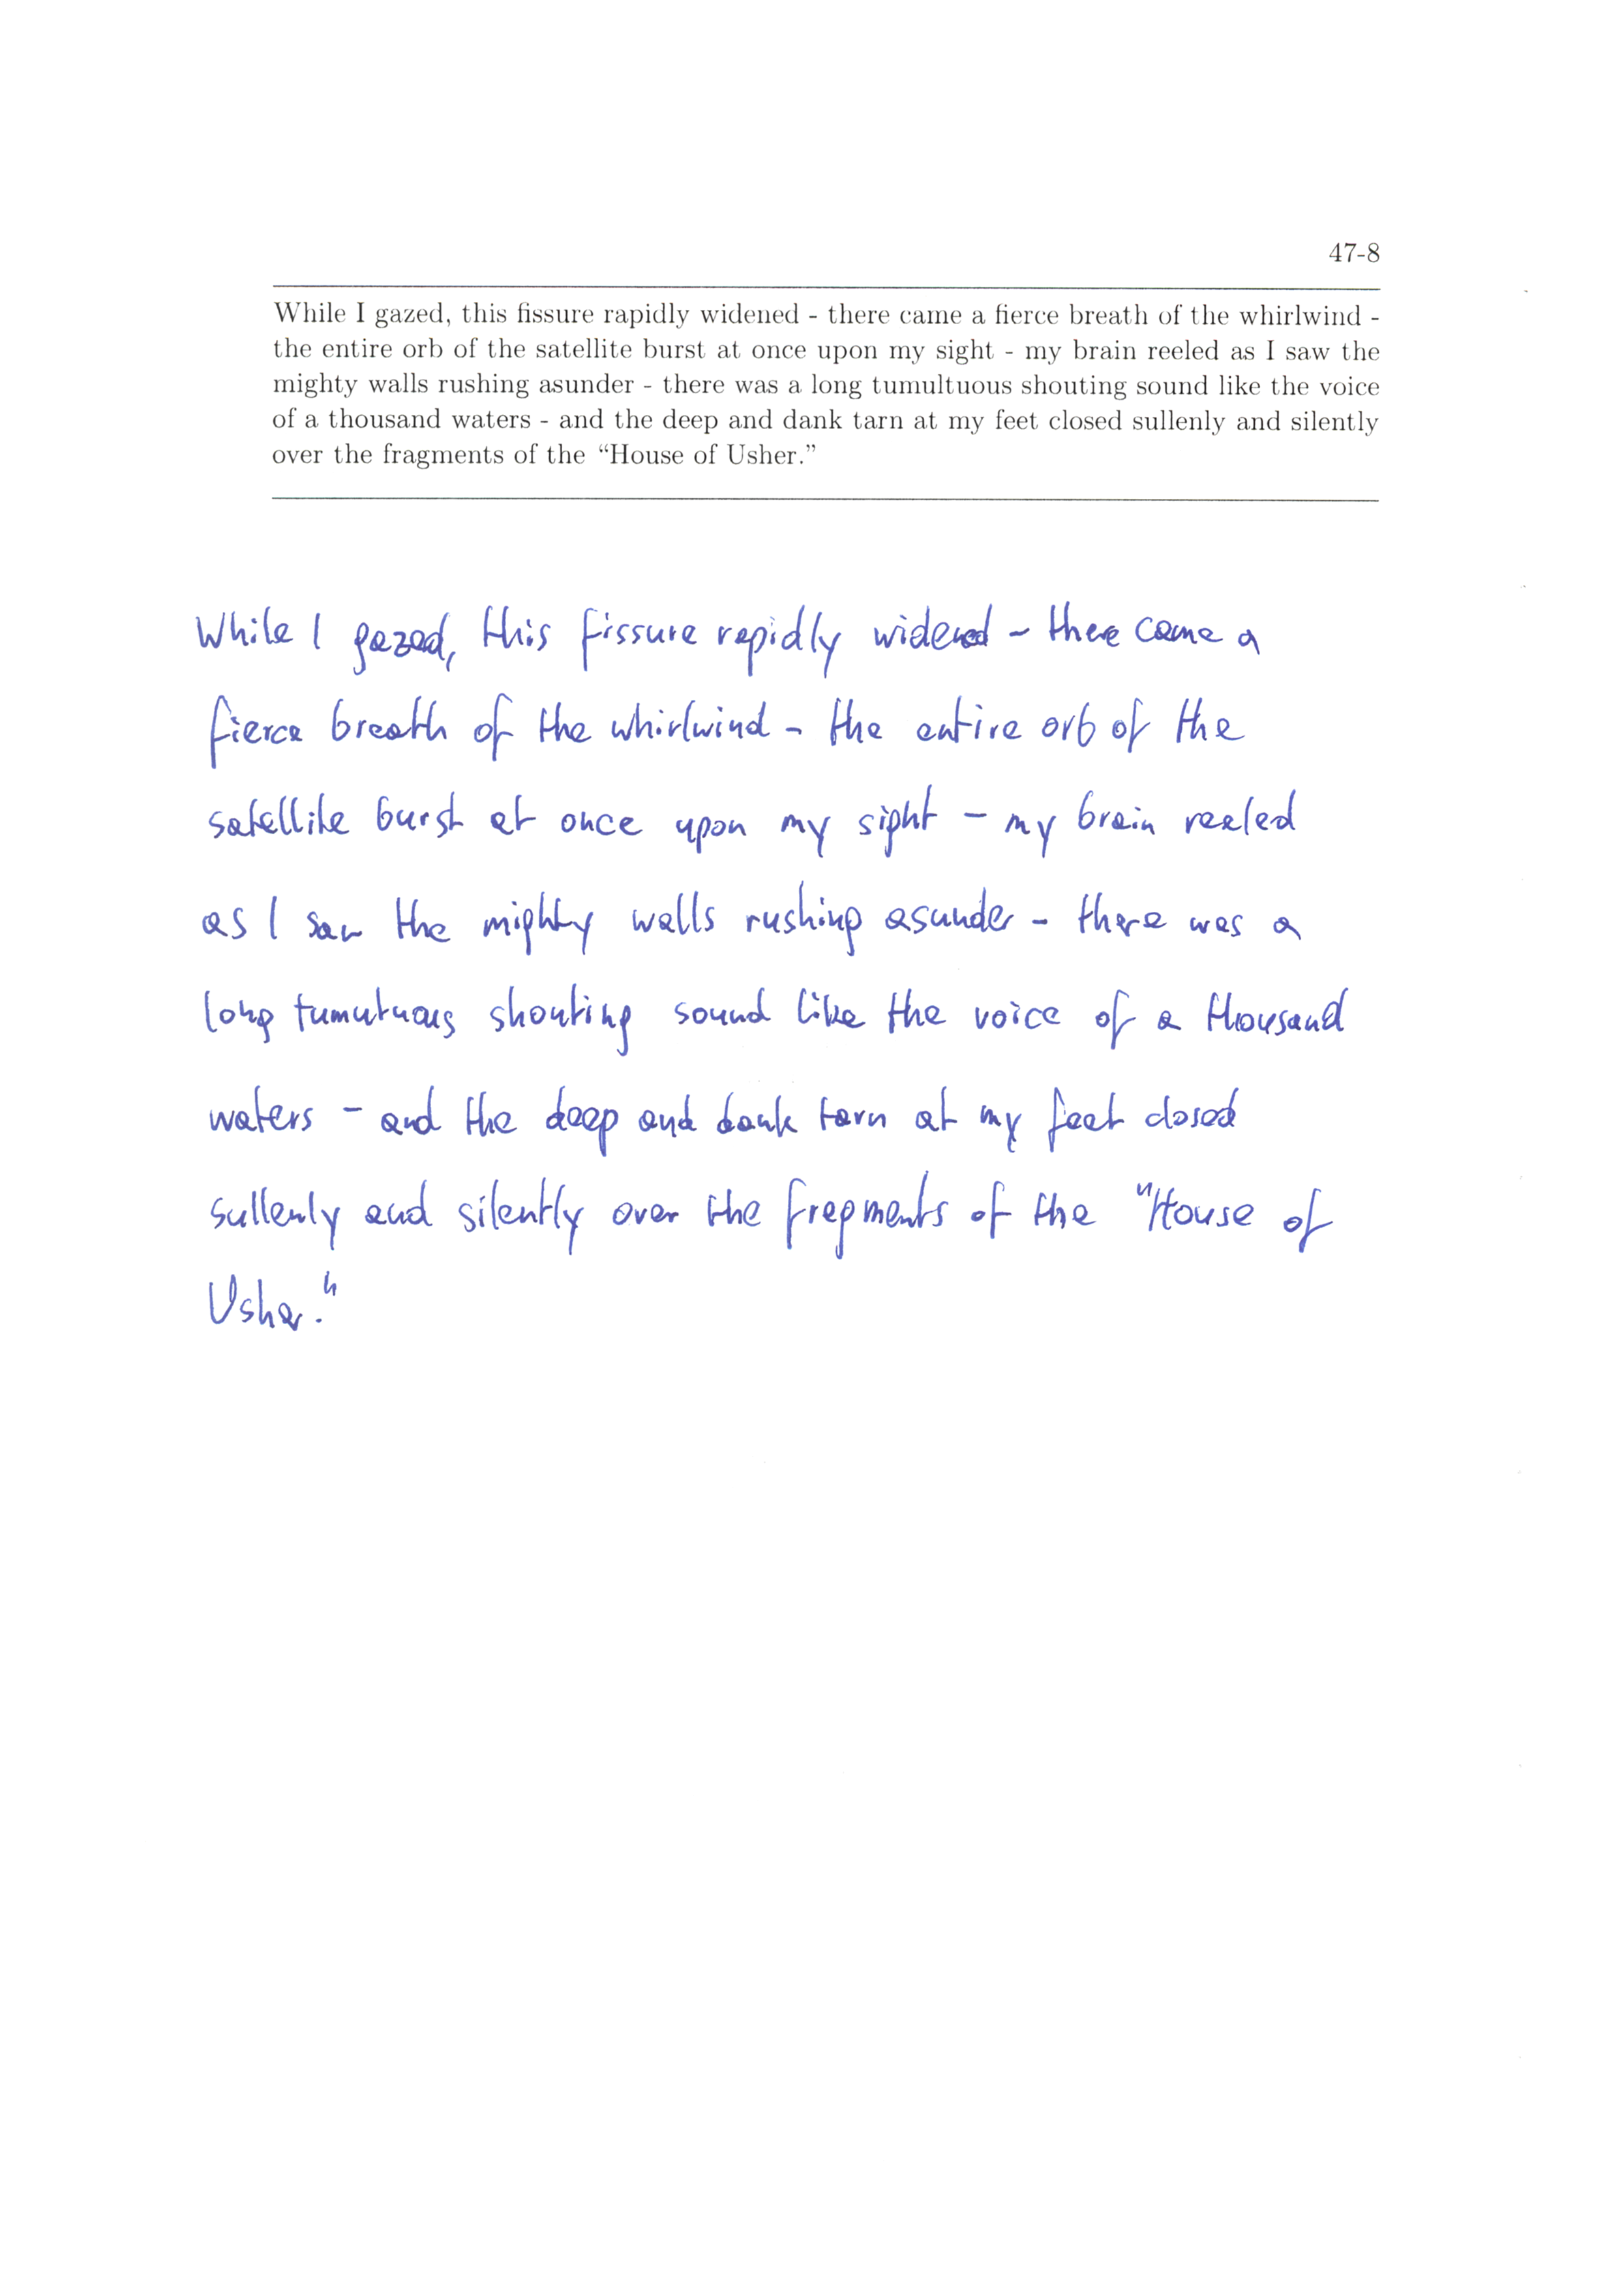 47-8
While I gazed, this fissure rapidly widened - there came a fierce breath of the whirlwind -
the entire orb of the satellite burst at once upon my sight - my brain reeled as I saw the
mighty walls rushing asunder - there was a long tumultuous shouting sound like the voice
of a thousand waters - and the deep and dank tarn at my feet closed sullenly and silently
over the fragments of the “House of Usher.”
While I gazed, this fissure rapidly widened - there came a
fierce breath of the whirlwind - the entire orb of the
satellite burst at once upon my sight - my brain reeled
as I saw the mighty walls rushing asunder - there was a
long tumutuous shouting sound like the voice of a thousand
waters - and the deep and dank tarn at my feet closed
sullenly and silently over the fragments of the "House of
Usher."